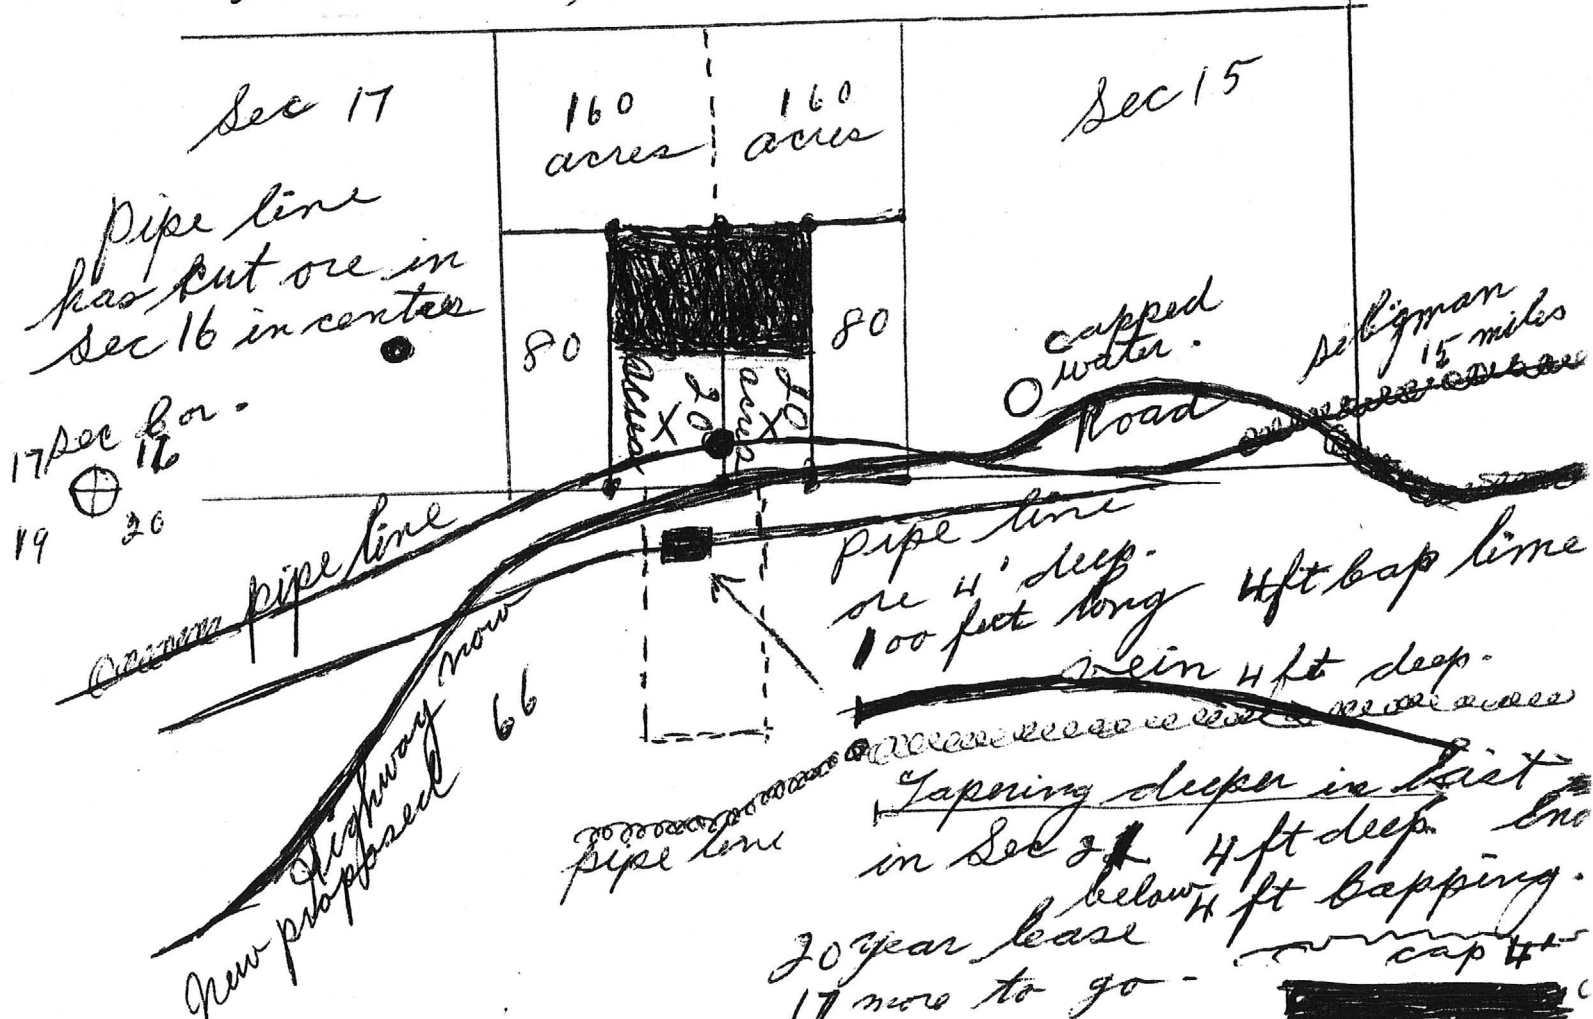 Sec 17
160
acres
160
acres
Sec 15
Pipe line
has cut ore in
Sec 16 in center
80
20
acres
X
20
acres
X
80
capped
water.
Seligman
15 miles
Road
Sec Cor.
17 16
19 20
pipe line
Pipe line
ore 4' deep.
100 feet long
4ft Cap lime
vein 4 ft deep.
New proposed
Highway now
66
pipe line
Tapering deeper in East End
in Sec 21 4 ft deep
below 4 ft Capping.
20 year lease
17 more to go -
cap 4